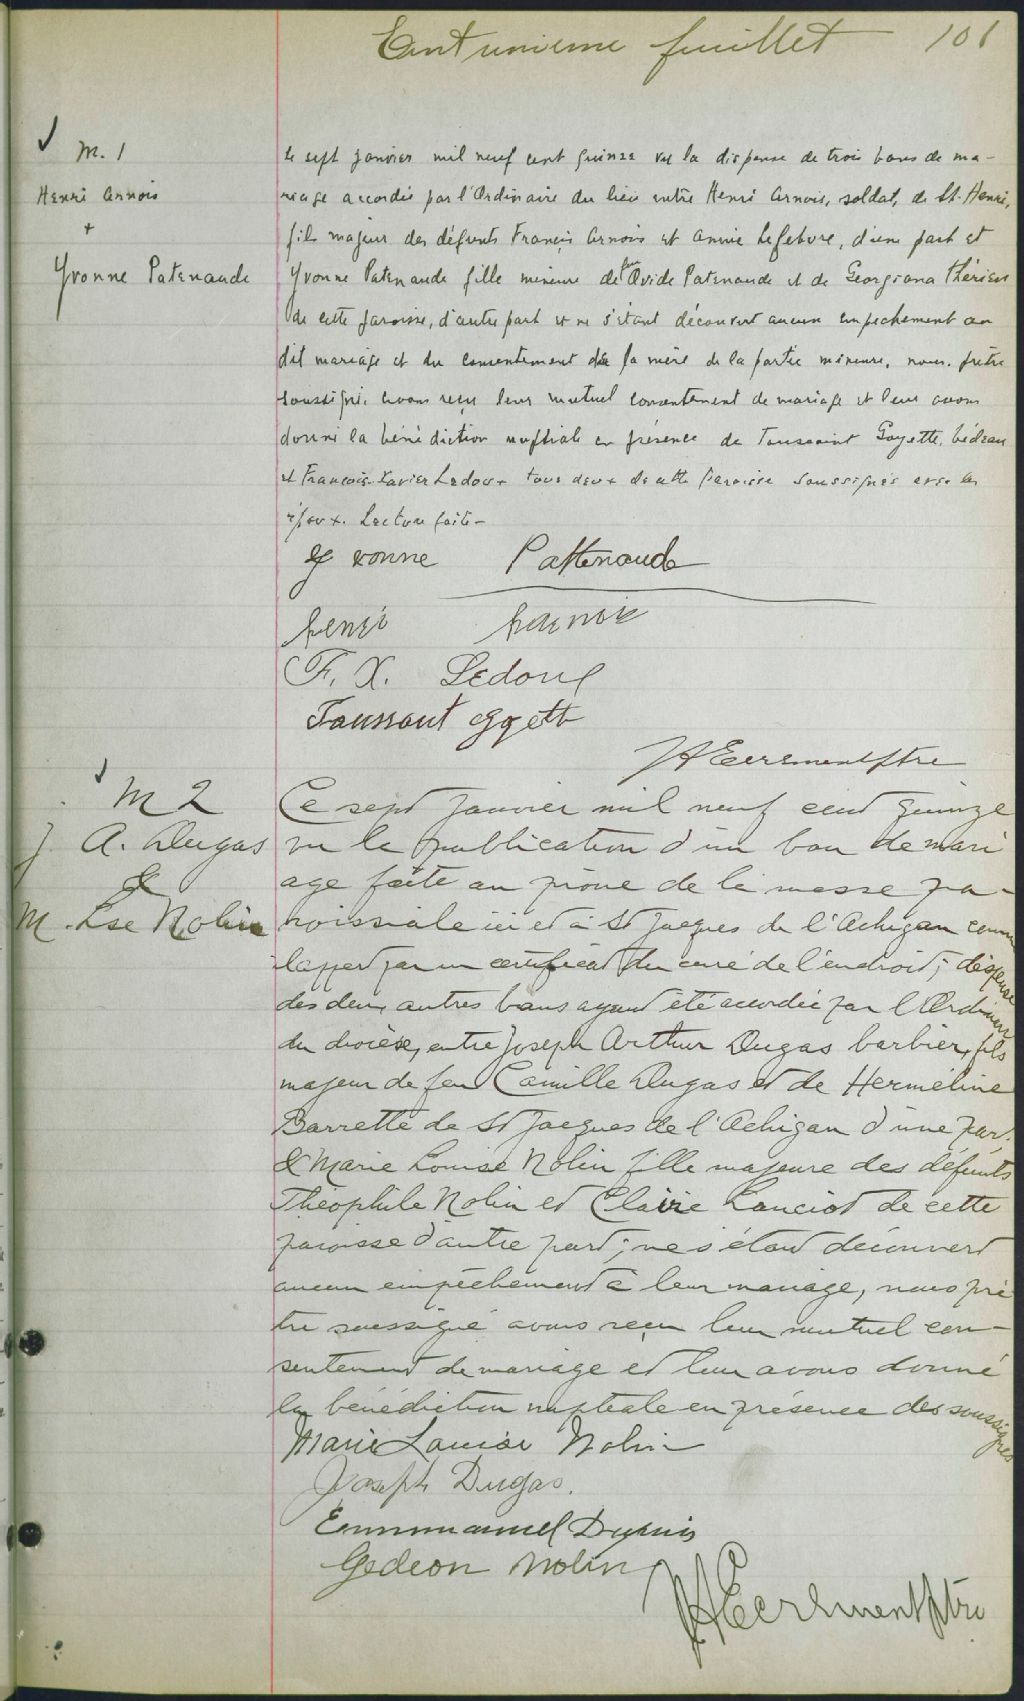 Cent unieme feuillet 101
M. 1
Henri Arnois
+
Yvonne Patenaude
Le sept janvier mil neuf cent quinze vu la dispense de trois bans de ma-
riage accordée par l'Ordinaire du lieu entre Henri Arnois, soldat, de St. Henri,
fils majeur des défunts François Arnois et Annie Lefebvre, d'une part et
Yvonne Patenaude fille mineure de feu Ovide Patenaude et de Georgiana Thérien
de cette paroisse, d'autre part et ne s'étant découvert aucun empêchement au
dit mariage et du consentement de la mère de la partie mineure, nous, prêtre
soussigné, avons reçu leur mutuel consentement de mariage et leur avons
donné la bénédiction nuptiale en présence de Toussaint Goyette, bédeau
et François-Xavier Ledoux tous deux de cette paroisse soussignés avec les
époux. Lecture faite-
Yvonne Pattenaude
henri
F. X. Ledoux
Toussaint
ptre
M 2
J. A. Dugas
&
M. Lse Nolin
Ce sept janvier mil neuf cent quinze
vu la publication d'un ban de mari
age faite au prône de la messe pa-
roissiale ici et à St Jacques de l'Achigan comme
l'appert par un certificat du curé de l'endroit; dispense
des deux autres bans ayant été accordée par l'Ordinaire
du diocèse, entre Joseph Arthur Dugas barbier, fils
majeur de feu Camille Dugas et de Herméline
Barrette de St Jacques de l'Achigan d'une part,
& Marie Louise Nolin fille majeure des défunts
Théophile Nolin et Claire Lanciot de cette
paroisse d'autre part; ne s'étant découvert
aucun empêchement à leur mariage, nous prê
tre soussigné avons reçu leur mutuel con-
sentement de mariage et leur avons donné
la bénédiction nuptiale en présence des soussignés
Marie Louise Nolin
Joseph Dugas.
Emmmanuel Dupuis
Gedeon Nolin
ptre